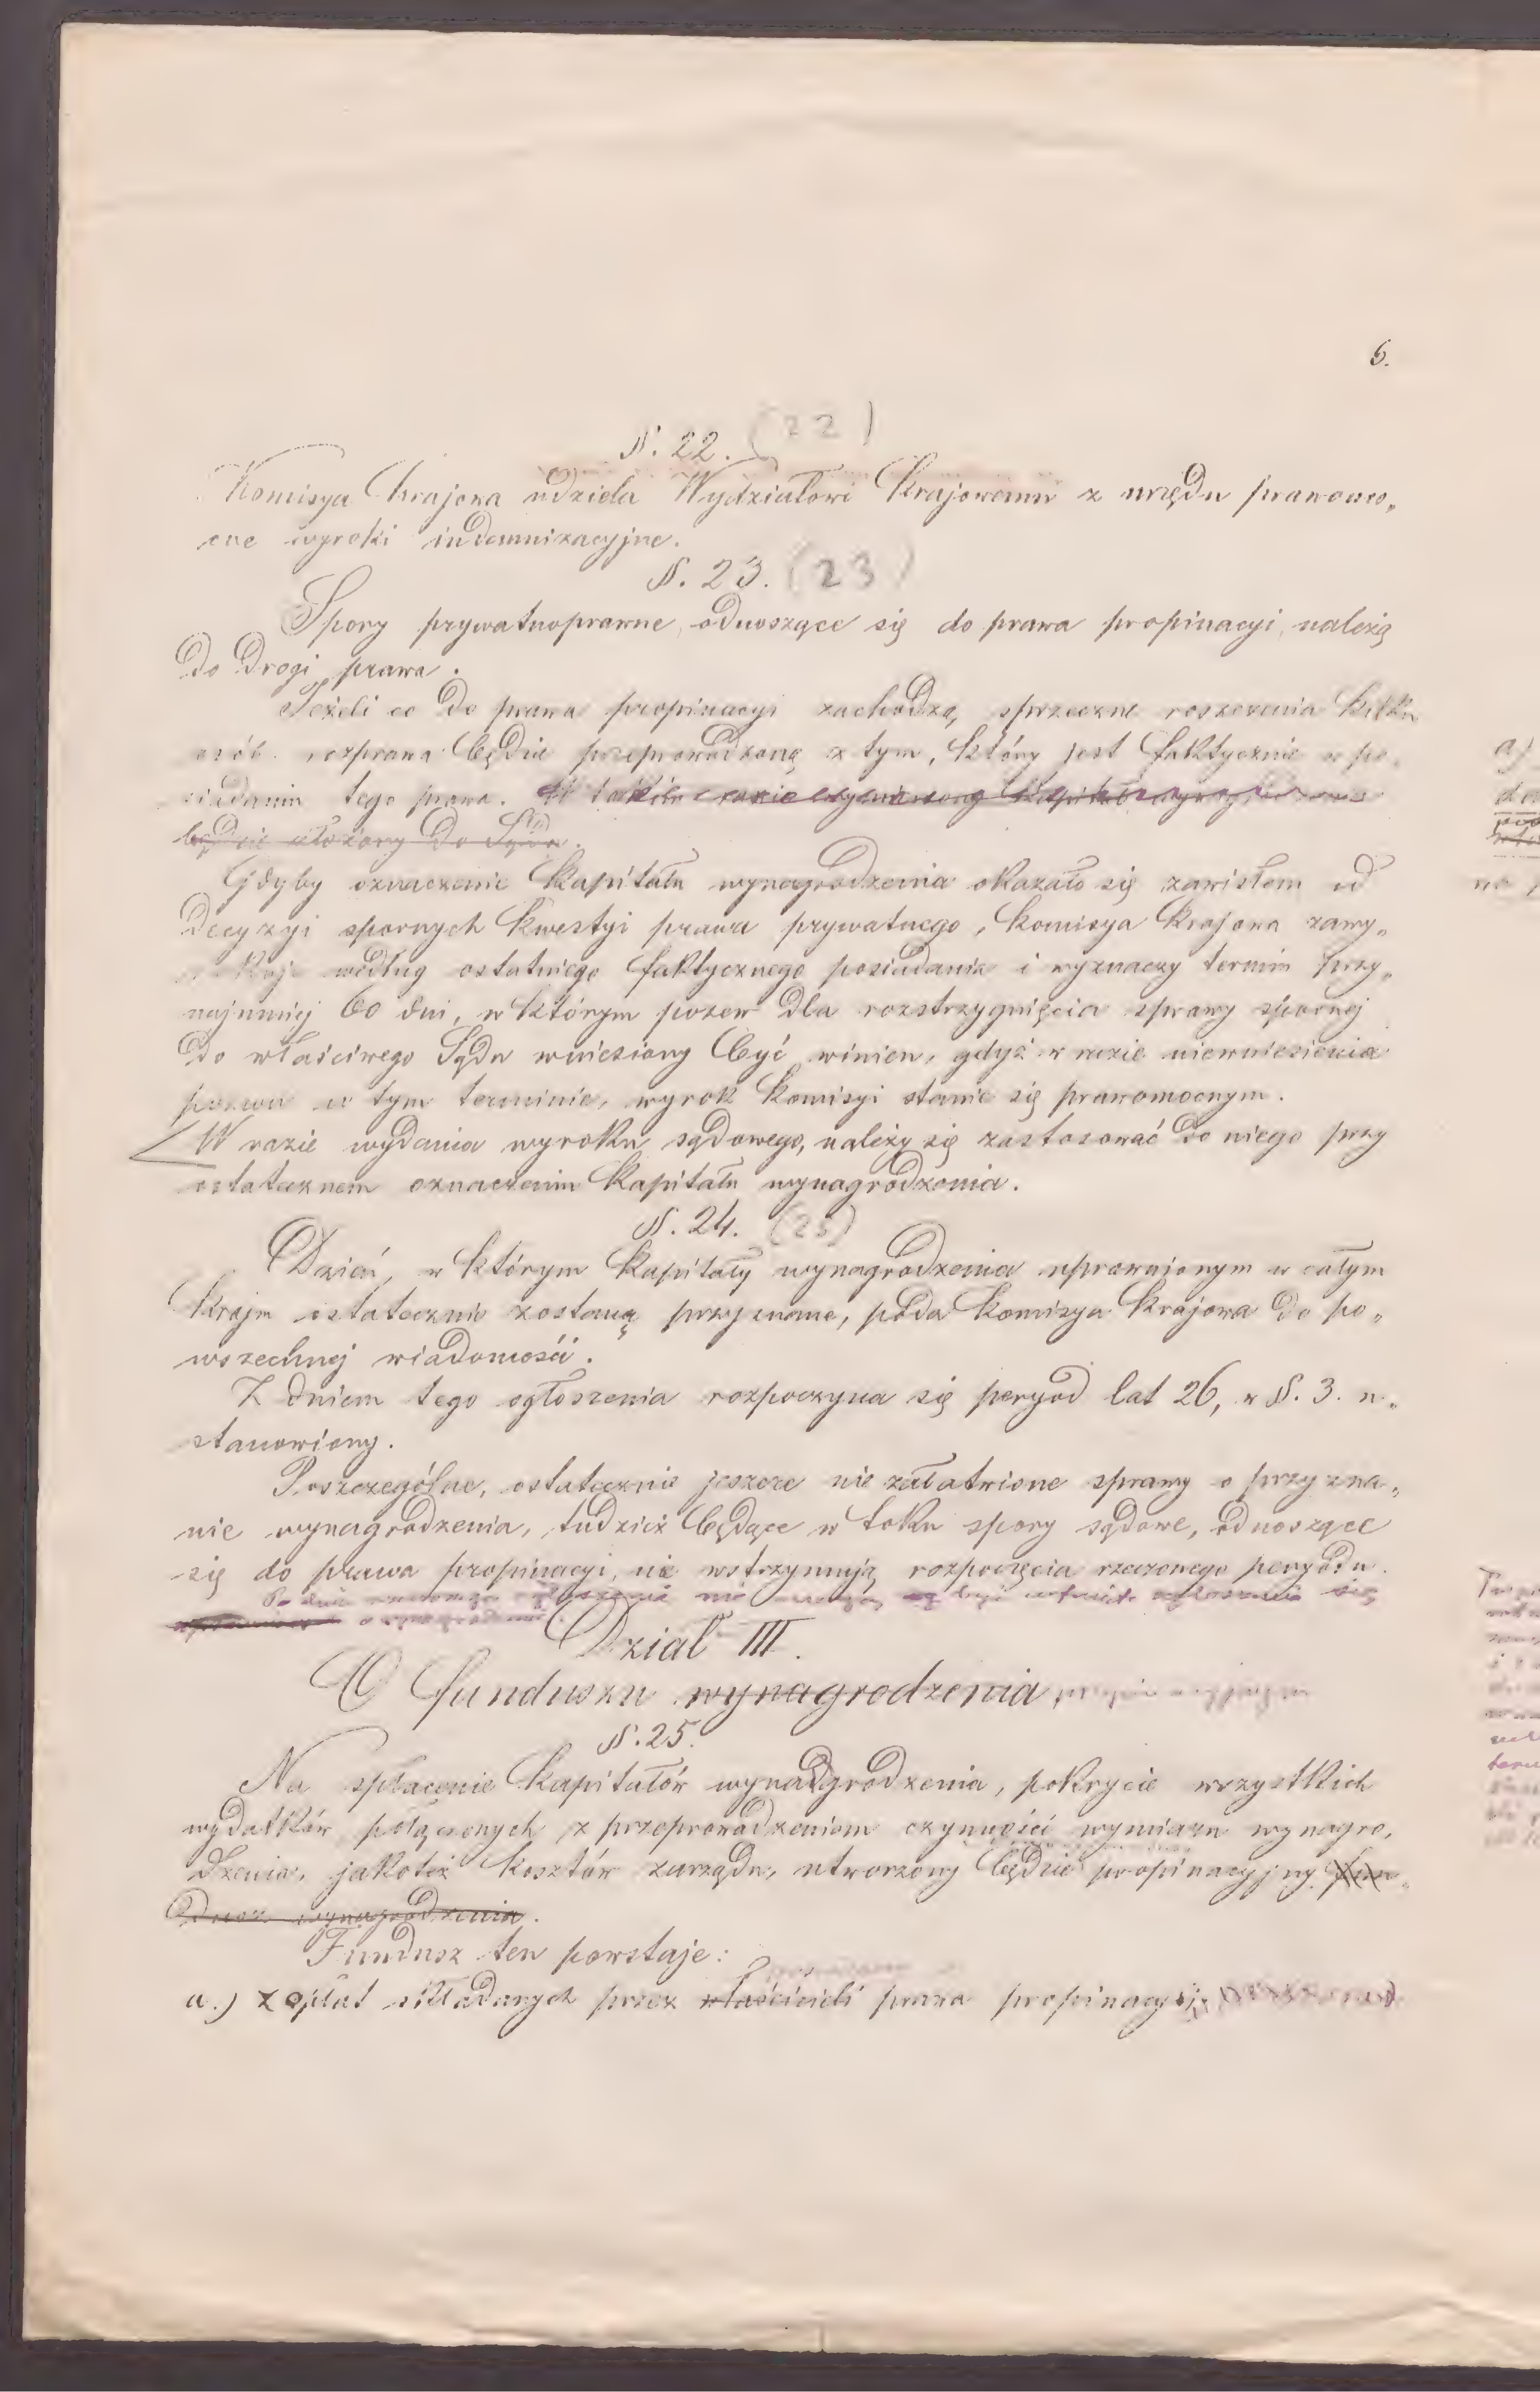 6.
§. 22. (22)
Komisya krajowa udziela Wydziałowi Krajowemu z urzędu prawomo„
cne wyroki indemnizacyjne.
§. 23. (23)
Spory prywatnoprawne, odnoszące się do prawa propinacyi, należą
do drogi prawa.
Jeżeli co do prawa propinacyi zachodzą, sprzeczne roszczenia kilku
osób. rozprawa będzie przeprowadzoną z tym, który jest faktycznie w po„
siadaniu tego prawa. W takim razie wymierzony kapitał
będzie złożony do Sądu.
Gdyby oznaczenie kapitału wynagrodzenia okazało się zawisłem od
decyzyi spornych kwestyi prawa prywatnego, Komisya Krajowa zawy„
według ostatniego faktycznego posiadania i wyznaczy termin przy„
najmniej 60 dni, w którym pozew dla rozstrzygnięcia sprawy spornej
do właściwego Sądu wniesiony być winien, gdyż w razie niewniesienia
pozwu w tym terminie, wyrok Komisyi stanie się prawomocnym.
W razie wydania wyroku sądowego, należy się zastosować do niego przy
ostatecznem oznaczeniu kapitału wynagrodzenia.
§. 24. (25)
Dzień, w którym kapitały wynagrodzenia uprawnionym w całym
kraju ostatecznie zostaną przyznane, poda Komisya Krajowa do po„
wszechnej wiadomości.
Z dniem tego ogłoszenia rozpoczyna się peryod lat 26, w §. 3. u„
stanowiony.
Poszczególne, ostatecznie jeszcze nie załatwione sprawy o przyzna„
nie wynagrodzenia, tudzież będące w toku spory sądowe, odnoszące
się do prawa propinacyi, nie wstrzymują rozpoczęcia rzeczonego peryodu.
Po dniu ogłoszenia nie być zgłoszenia się
o wynagrodzenie.
Dział III.
O funduszu wynagrodzenia propinacyjnym
§. 25.
Na spłacenie kapitałów wynadgrodzenia, pokrycie wszystkich
wydatków połączonych z przeprowadzeniem czynności wymiaru wynagro„
dzenia, jakoteż kosztów zarządu, utworzony będzie propinacyjny fun„
dusz wynagrodzenia.
Fundusz ten powstaje:
a.) z opłat składanych przez właścicieli prawa propinacyi